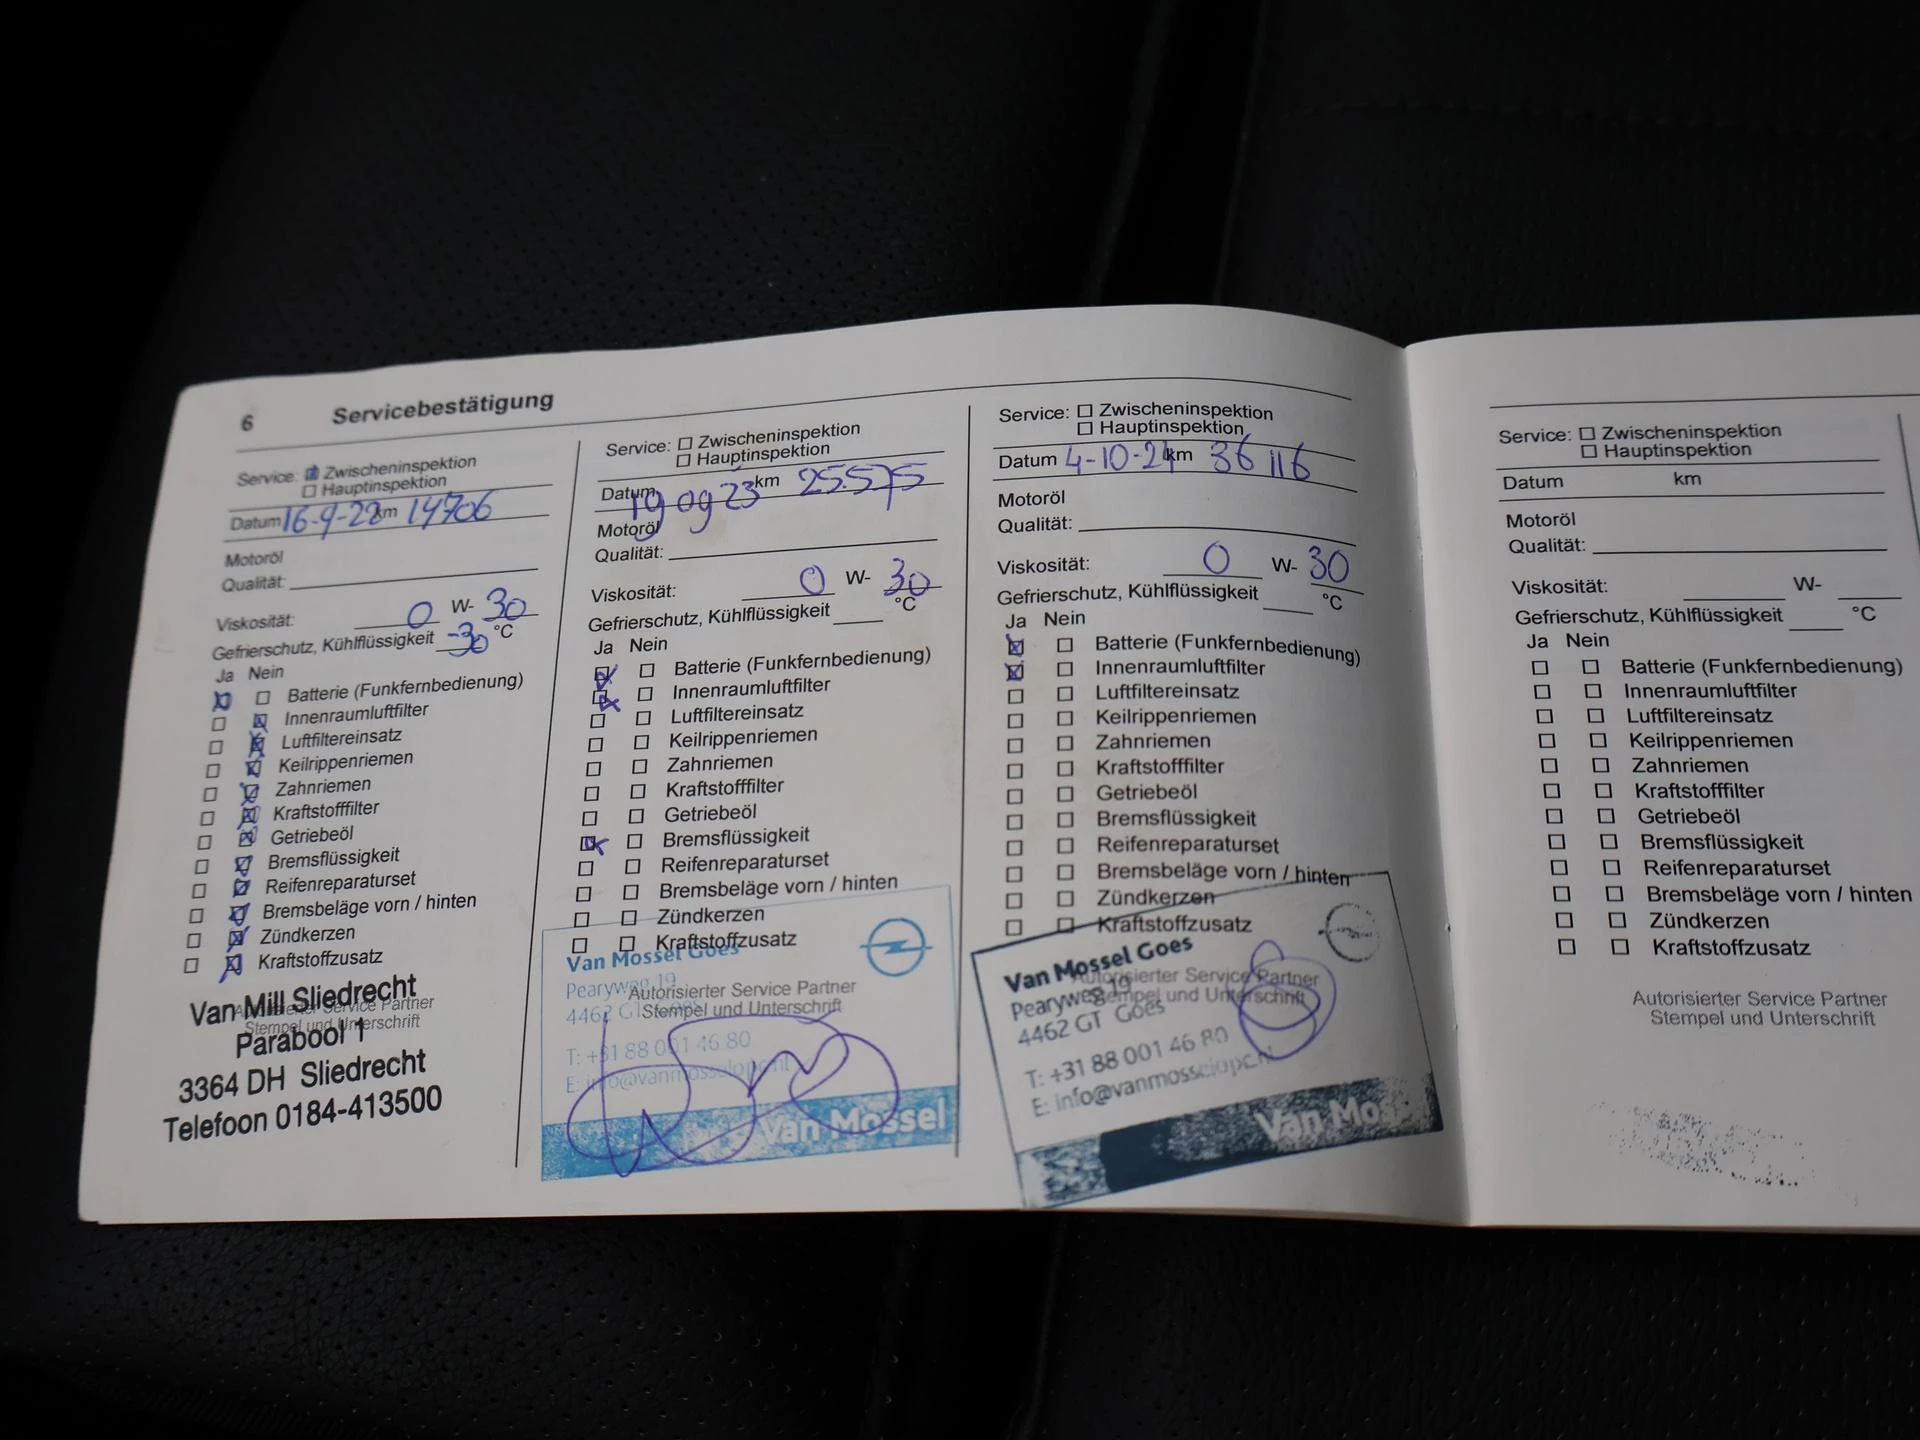 6 Servicebestätigung
Service: Zwischeninspektion
Hauptinspektion
Datum 16-9-22 km 14706
Motoröl
Qualität:
Viskosität: 0 W- 30
Gefrierschutz, Kühlflüssigkeit -30 °C
Ja Nein
Batterie (Funkfernbedienung)
Innenraumluftfilter
Luftfiltereinsatz
Keilrippenriemen
Zahnriemen
Kraftstofffilter
Getriebeöl
Bremsflüssigkeit
Reifenreparaturset
Bremsbeläge vorn / hinten
Zündkerzen
Kraftstoffzusatz
Autorisierter Service Partner
Stempel und Unterschrift
Van Mill Sliedrecht
Parabool 1
3364 DH Sliedrecht
Telefoon 0184-413500
Service: Zwischeninspektion
Hauptinspektion
Datum 19 09 23 km 25.575
Motoröl
Qualität:
Viskosität: 0 W- 30
Gefrierschutz, Kühlflüssigkeit °C
Ja Nein
Batterie (Funkfernbedienung)
Innenraumluftfilter
Luftfiltereinsatz
Keilrippenriemen
Zahnriemen
Kraftstofffilter
Getriebeöl
Bremsflüssigkeit
Reifenreparaturset
Bremsbeläge vorn / hinten
Zündkerzen
Kraftstoffzusatz
Autorisierter Service Partner
Stempel und Unterschrift
Van Mossel Goes
Pearyweg 19
4462 GT Goes
T: +31 88 001 46 80
E: info@vanmosselopc.nl
Van Mossel
Service: Zwischeninspektion
Hauptinspektion
Datum 4-10-24 km 36 116
Motoröl
Qualität:
Viskosität: 0 W- 30
Gefrierschutz, Kühlflüssigkeit °C
Ja Nein
Batterie (Funkfernbedienung)
Innenraumluftfilter
Luftfiltereinsatz
Keilrippenriemen
Zahnriemen
Kraftstofffilter
Getriebeöl
Bremsflüssigkeit
Reifenreparaturset
Bremsbeläge vorn / hinten
Zündkerzen
Kraftstoffzusatz
Autorisierter Service Partner
Stempel und Unterschrift
Van Mossel Goes
Pearyweg 19
4462 GT Goes
T: +31 88 001 46 80
E: info@vanmosselopc.nl
Van Mossel
Service: Zwischeninspektion
Hauptinspektion
Datum km
Motoröl
Qualität:
Viskosität: W-
Gefrierschutz, Kühlflüssigkeit °C
Ja Nein
Batterie (Funkfernbedienung)
Innenraumluftfilter
Luftfiltereinsatz
Keilrippenriemen
Zahnriemen
Kraftstofffilter
Getriebeöl
Bremsflüssigkeit
Reifenreparaturset
Bremsbeläge vorn / hinten
Zündkerzen
Kraftstoffzusatz
Autorisierter Service Partner
Stempel und Unterschrift